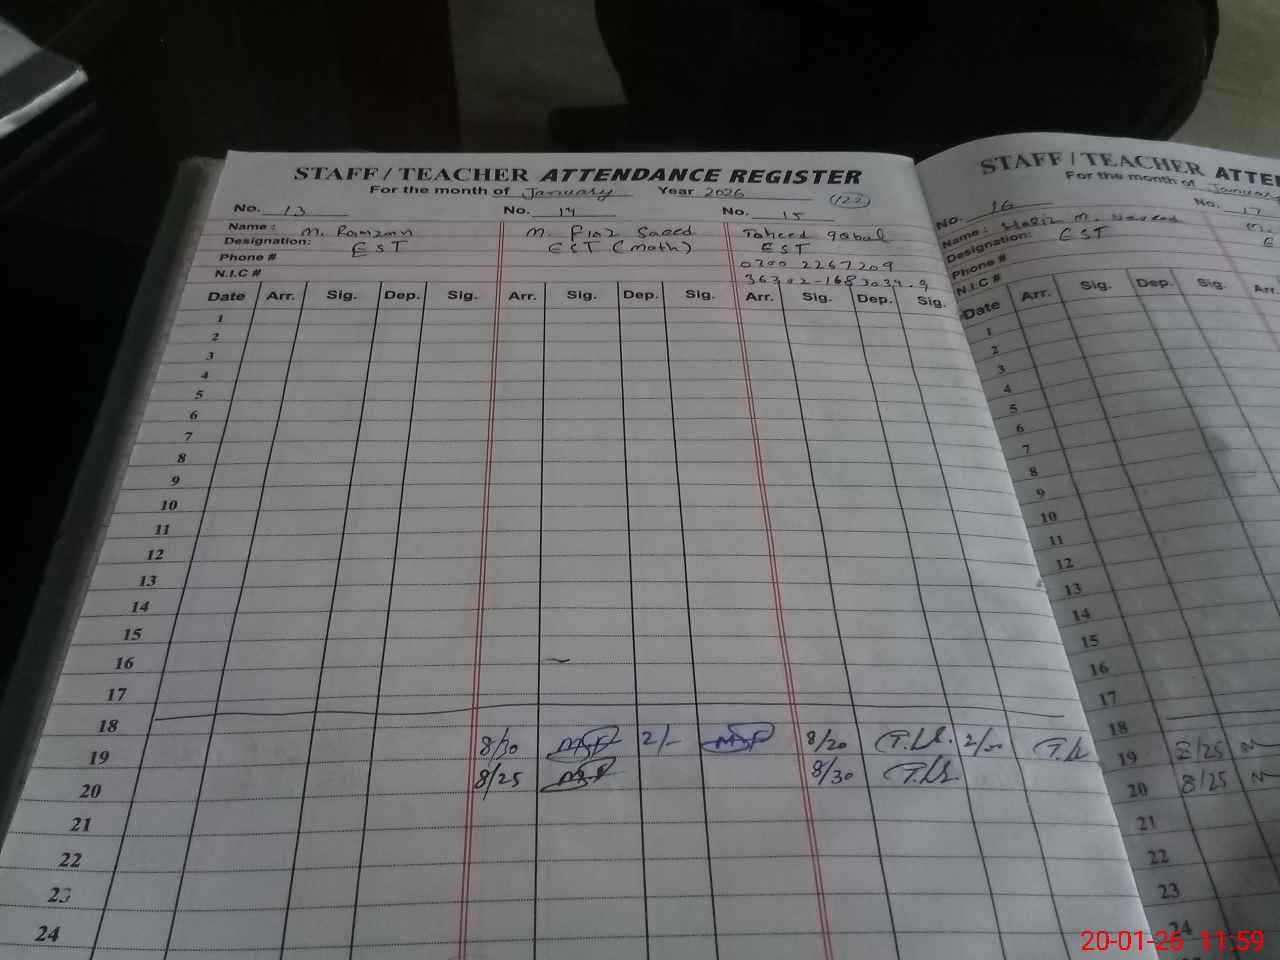 STAFF / TEACHER ATTENDANCE REGISTER
For the month of January Year 2026 (122)
No. 13 No. 14 No. 15
Name : M. Ramzan M. Fiaz Saeed Taheed Iqbal
Designation: EST EST (math) EST
Phone # 0700 2267209
N.I.C # 36302-1683034-9
Date Arr. Sig. Dep. Sig. Arr. Sig. Dep. Sig. Arr. Sig. Dep. Sig.
1
2
3
4
5
6
7
8
9
10
11
12
13
14
15
16
17
18
19 8/30 2/- 8/20 T.
20 8/25 8/30
21
22
23
24
STAFF / TEACHER ATTE
For the month of January
No. 16 No. 17
Name : Hafiz M. Naveed M.
Designation: EST E
Phone #
N.I.C #
Date Arr. Sig. Dep. Sig. Arr.
1
2
3
4
5
6
7
8
9
10
11
12
13
14
15
16
17
18
19 8/25
20 8/25
21
22
23
24
20-01-26 11:59